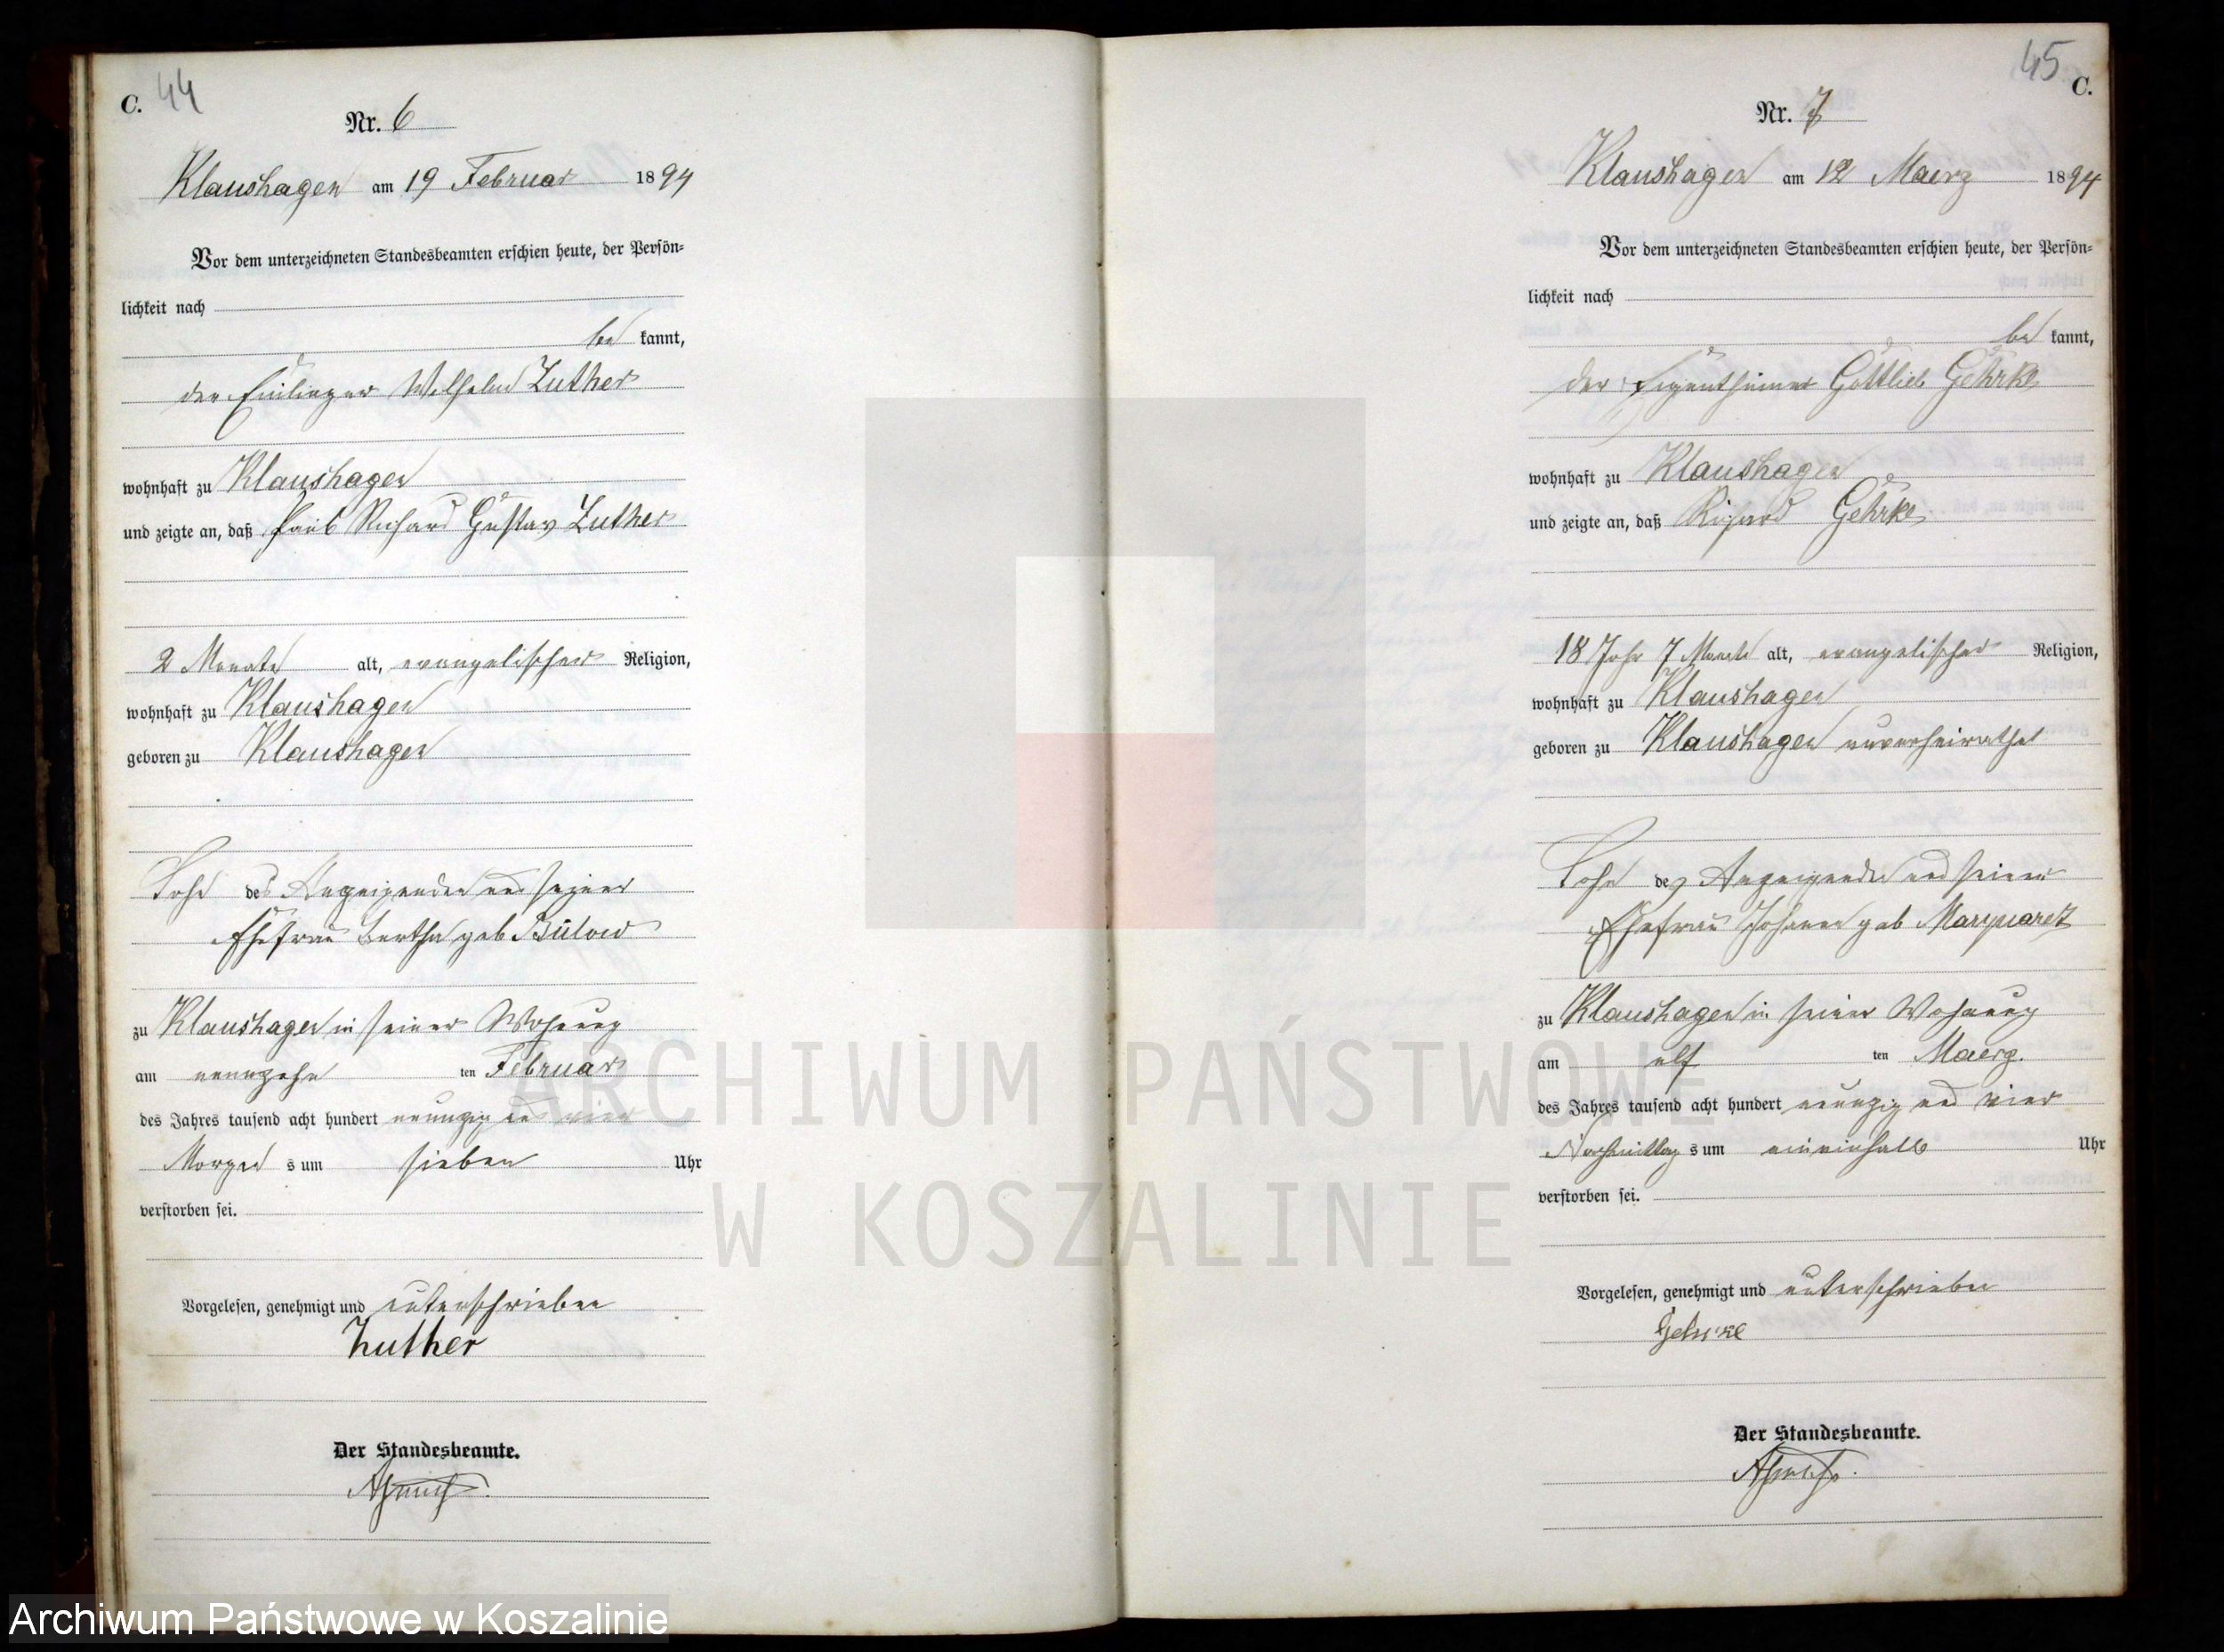 C. 44
Nr. 6
Klaushagen am 19 Februar 1894
Vor dem unterzeichneten Standesbeamten erschien heute, der Persön=
lichkeit nach
be kannt,
der Einlieger Wilhelm Luther
wohnhaft zu Klaushagen
und zeigte an, daß Paul Richard Gustav Luther
2 Monate alt, evangelischer Religion,
wohnhaft zu Klaushagen
geboren zu Klaushagen
Sohn des Anzeigenden und seiner
Ehefrau Bertha geb Bülow
zu Klaushagen in seiner Wohnung
am neunzehn ten Februar
des Jahres tausend acht hundert neunzig und vier
Morgen s um sieben Uhr
verstorben sei.
Vorgelesen, genehmigt und unterschrieben
Luther
Der Standesbeamte.
45 C.
Nr. 7
Klaushagen am 12 Maerz 1894
Vor dem unterzeichneten Standesbeamten erschien heute, der Persön=
lichkeit nach
be kannt,
der Eigenthümer Gottlieb Gehrke
wohnhaft zu Klaushagen
und zeigte an, daß Richard Gehrke
18 Jahr 7 Monate alt, evangelischer Religion,
wohnhaft zu Klaushagen
geboren zu Klaushagen unverheirathet
Sohn des Anzeigenden und seiner
Ehefrau Johanna geb Marquardt
zu Klaushagen in seiner Wohnung
am elf ten Maerz.
des Jahres tausend acht hundert neunzig und vier
Nachmittag s um eineinhalb Uhr
verstorben sei.
Vorgelesen, genehmigt und unterschrieben
Gehrke
Der Standesbeamte.
ARCHIWUM PAŃSTWOWE
W KOSZALINIE
Archiwum Państwowe w Koszalinie